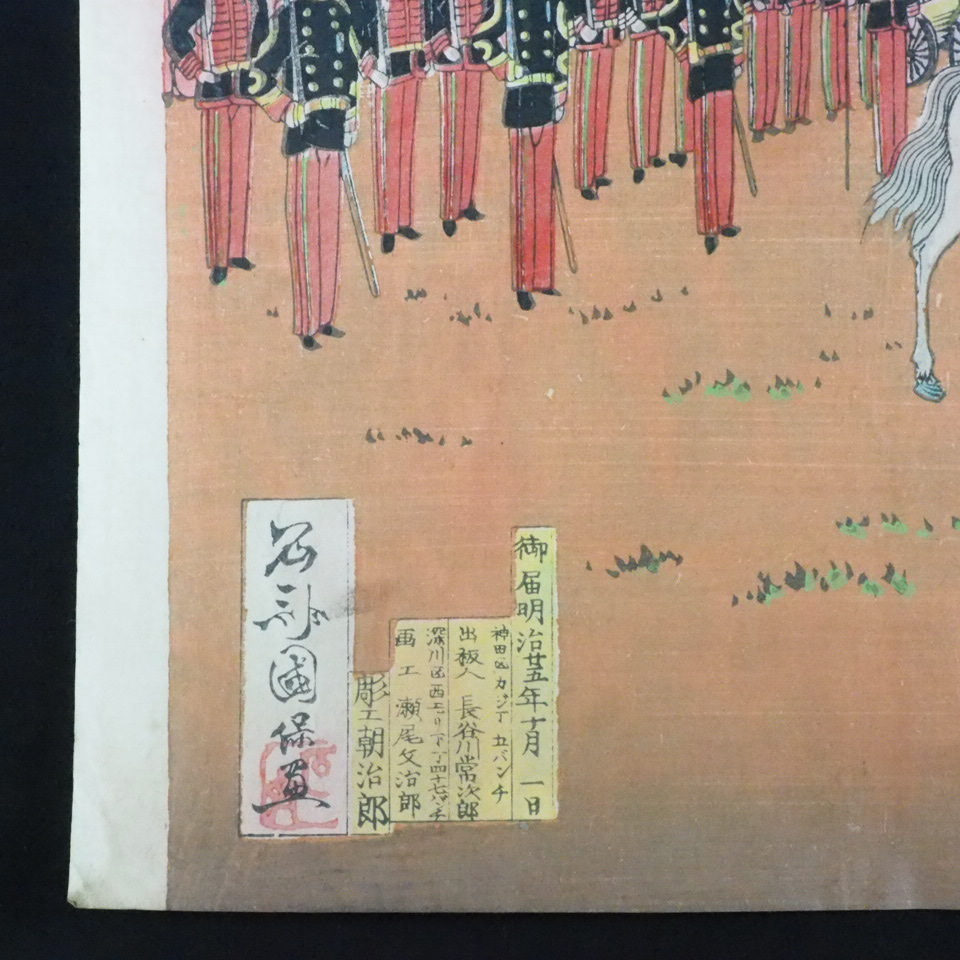 御届明治廿五年十月 一日
神田区カジ丁五バンチ
出板人 長谷川常次郎
深川区西元リ丁四十七バンチ
画工 瀬尾文治郎
彫工朝治郎
國保畫